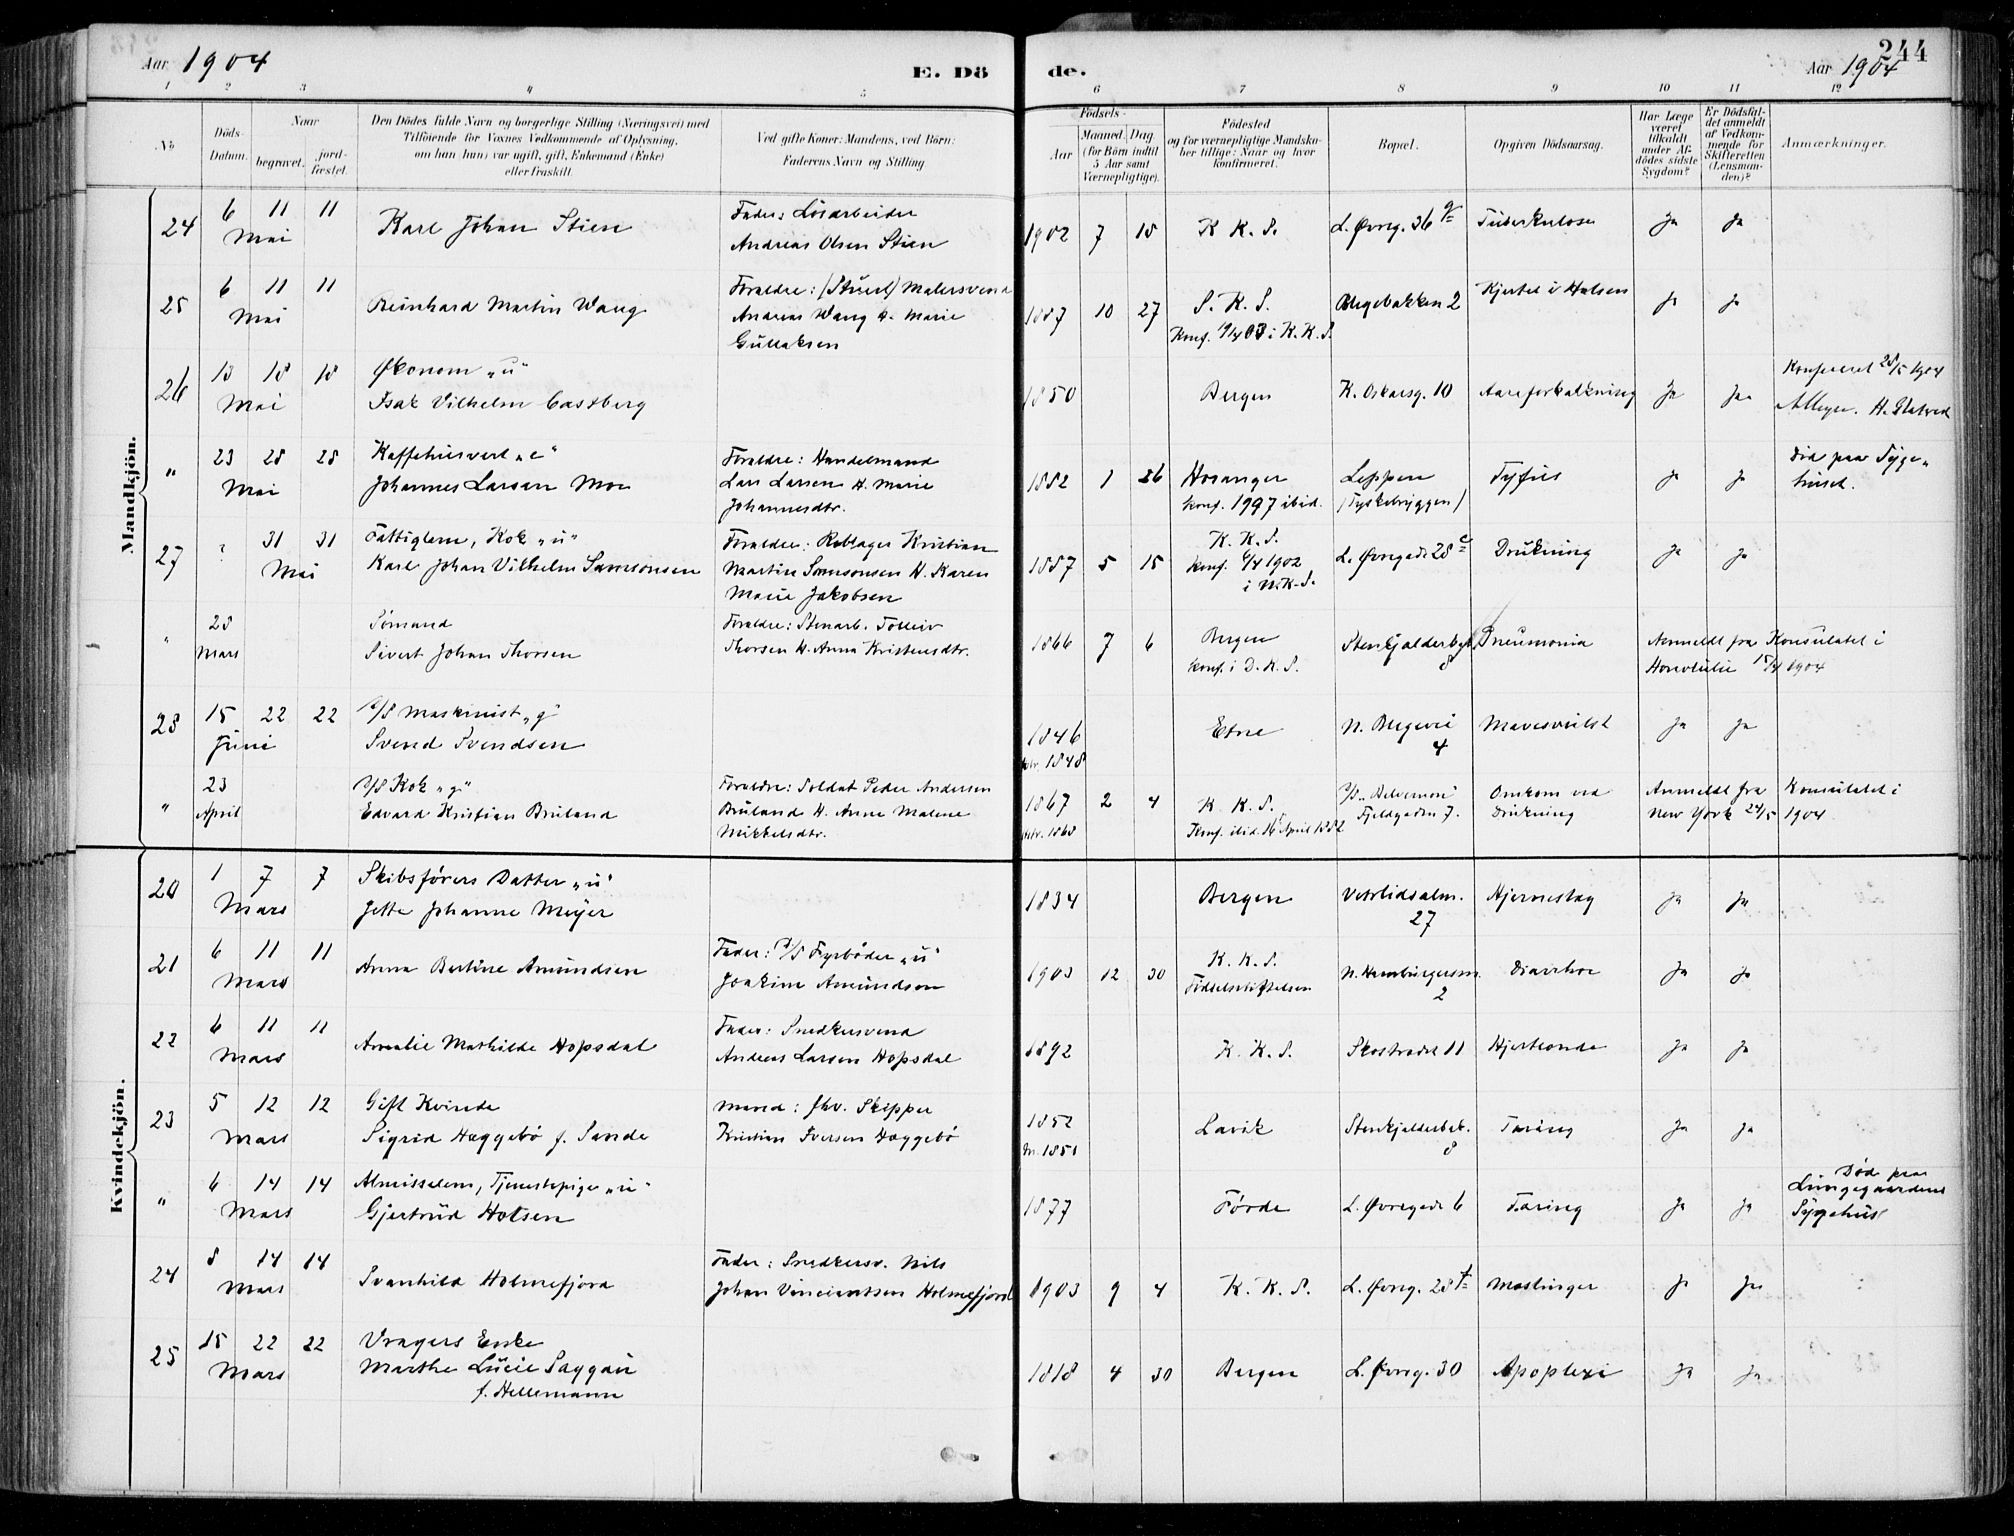 Aar 1904
E. Dö
de.
244
Aar 1904
1 2 3 4 5 6 7 8 9 10 11 12
No
Döds-Datum.
Naar
begravet.
jord-fæstet.
Den Dödes fulde Navn og borgerlige Stilling (Næringsvei) med
Tilföiende for Voxnes Vedkommende af Oplysning,
om han (hun) var ugift, gift, Enkemand (Enke)
eller fraskilt.
Ved gifte Koner: Mandens, ved Börn:
Faderens Navn og Stilling.
Födsels-
Aar
Maaned. Dag.
(for Börn indtil
5 Aar samt
Værnepligtige).
Födested
og for værnepligtige Mandska-
ber tillige: Naar og hvor
konfirmeret.
Bopæl.
Opgiven Dödsaarsag.
Har Læge
været
tilkaldt
under Af-
dödes sidste
Sygdom?
Er Dödsfal-
det anmeldt
af Vedkom-
mende for
Skifteretten
(Lensman-
den)?
Anmærkninger.
Mandkjön.
24 6 11 11 Mai
Karl Johan Stien
Fader: Løsarbeider
Andreas Olsen Stien
1902 7 18 K. K. S. L. Øvreg. 36 Tuberkulose Ja Ja
25 6 11 11 Mai
Reinhard Martin Wang
Forældre: Malersvend
Andreas Wang & Marie
Gullaksen
1887 10 27 S. K. S.
Konf. 03 i K. K. S.
Blegebakken 2 Kjertel i Halsen Ja Ja
26 13 18 18 Mai
Økonom „u"
Isak Vilhelm Castberg
1850 Bergen K. Oskarsg. 10 Aareforkalkning Ja Ja
Konfereret 28/5 1904
" 23 28 28 Mai
Kaffehusvert „e"
Johannes Larsen Moe
Forældre: Handelmand
Lars Larsen & Marie
Johannesdtr.
1852 1 26 Hosanger
konf. 1997 ibid.
Leppen
(Tyskebryggen)
Tyfus Ja Ja
Død paa Syge-
huset.
27 ? 31 31 Mai
Fattiglem, Kok „u"
Karl Johan Vilhelm Samsonsen
Forældre: Rebslager Kristian
Martin Samsonsen & Karen
Marie Jakobsen
1887 5 15 K. K. S.
konf. 6/4 1902
i N. K. S.
L. Øvregade 28 Drukning Ja Ja
" 28 Mars
Sømand
Sivert Johan Thorsen
Forældre: Stenarb. Tolleiv
Thorsen & Anna Kristensdtr.
1866 7 6 Bergen
konf. i D. K. S.
Stenkjælderbak. 8
Pneumonia
Anmeldt fra Konsulatet i
Honolulu 15/4 1904
28 15 22 22 Juni
Maskinist „g"
Svend Svendsen
1846
1848
Etne N. Blegevei 4 Ja Ja
" 23 April
Kok „g"
Edvard Kristian Bruland
Forældre: Soldat Peder Andersen
Bruland & Anne Malene
Mikkelsdtr.
1867 2 4
1868
K. K. S.
Konf. ibid. 16 April 1882
Fjeldgaden 7.
Omkom ved
Drukning
Anmeldt fra Konsulatet i
New York 24/5 1904
Kvindekjön.
20 1 7 7 Mars
Skibsførers Datter „u"
Jette Johanne Meyer
1834 Bergen Vetrlidsalm. 27 Hjerneslag Ja Ja
21 6 11 11 Mars
Anna Bertine Amundsen
Fader: Fyrbøder „u"
Joakim Amundsen
1903 12 30 K. K. S.
Fødselsstiftelsen
N. Hamburgersm. 2
Diarrhoe Ja Ja
22 6 11 11 Mars
Amalie Mathilde Hopsdal
Fader: Snedkersvend
Andreas Larsen Hopsdal
1892 K. K. S. Skostrædet 11 Hjerteonde Ja Ja
23 5 12 12 Mars
Gift Kvinde
Sigrid Hæggebø f. Sande
Mand: fhv. Skipper
Kristian Iversen Hæggebø
1852
Lavik Stenkjælderbak. 8 Tæring Ja Ja
" 6 14 14 Mars
Almisselem, Tjenestepige „u"
Gjertrud Hotsen
1877 Førde L. Øvregade 6 Tæring Ja Ja
Død paa
Lungegaardens
Sygehus
24 8 14 14 Mars
Svanhild Holmefjord
Fader: Snedkersv. Nils
Johan Vincientsen Holmefjord
1903 9 4 K. K. S. L. Øvreg. 28 Mæslinger Ja Ja
25 15 22 22 Mars
Vragers Enke
Marthe Lucie Saggau
f. Hellemann
1818 4 30 Bergen L. Øvreg. 30 Apoplexi Ja Ja